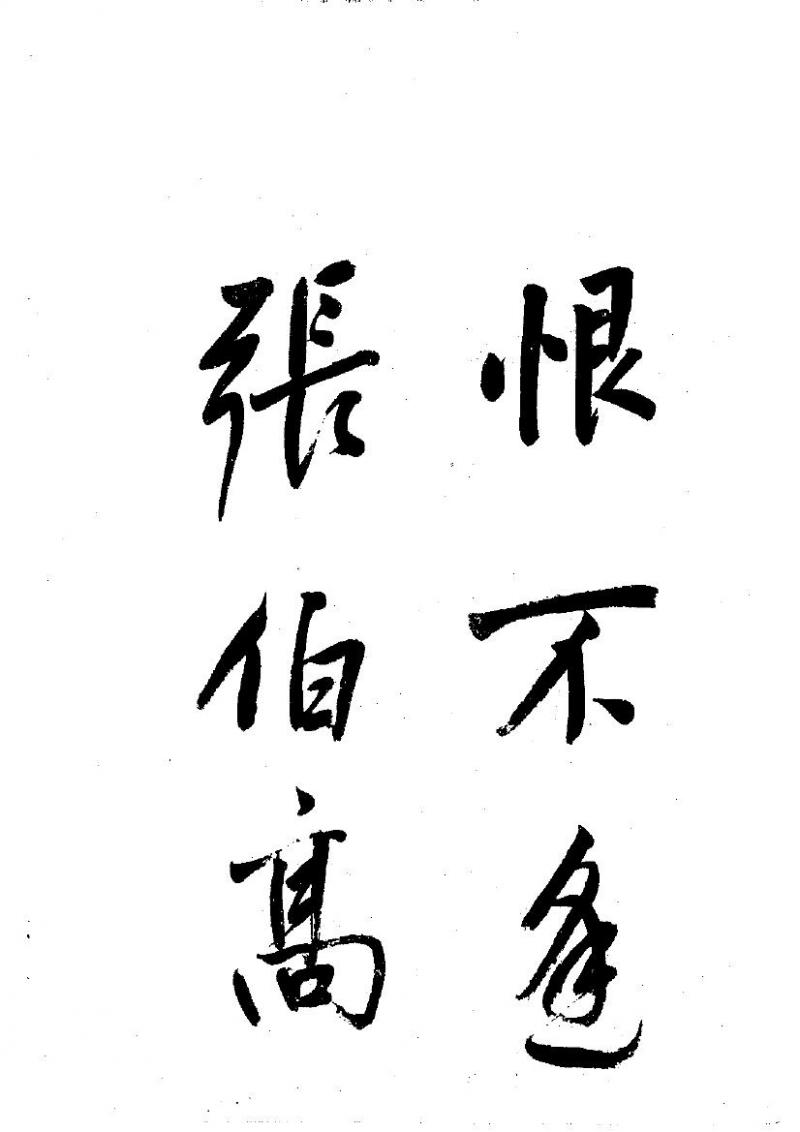 恨不逢
張伯髙